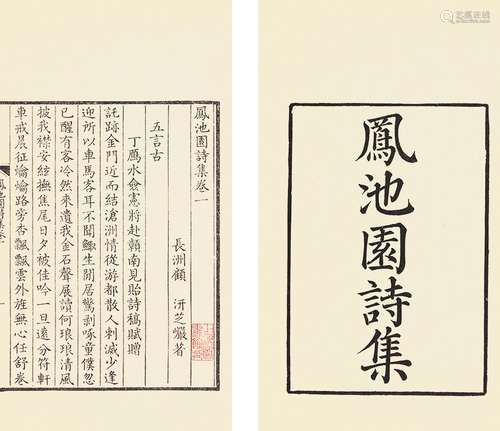 鳳池園詩集
鳳池園詩集卷一
長洲顧 汧芝巖著
五言古
丁鴈水僉憲將赴贛南見貽詩稿賦贈
託跡金門近而結滄洲情從游都散人刺滅少逢
迎所以車馬客耳不聞鯫生閒居驚剥啄童僕忽
已醒有客冷然來遺我金石聲展讀何琅琅清風
披我襟安絃撫焦尾日夕被佳吟一旦遠分符軒
車戒晨征路旁杏飄飄雲外旌無心任舒卷
鳳池園詩集卷一